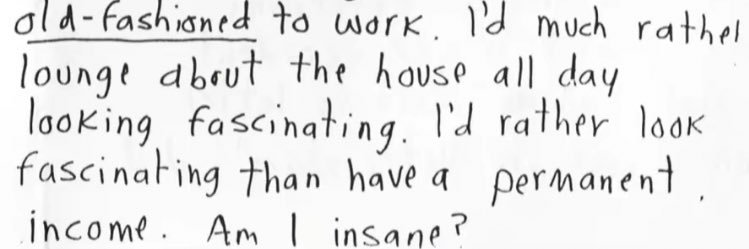 old-fashioned to work. I'd much rather
lounge about the house all day
looking fascinating. I'd rather look
fascinating than have a permanent
income. Am I insane?